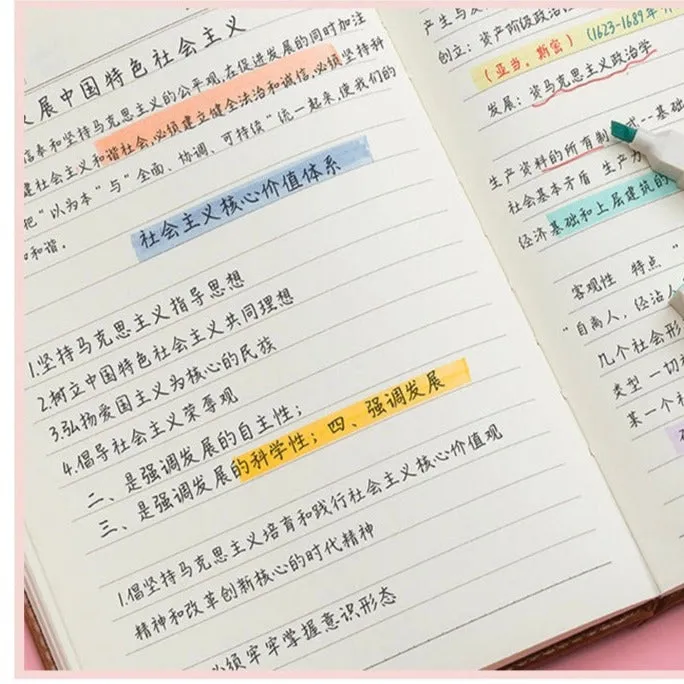 展中国特色社会主义
信泰和坚持马克思主义的公平观,在促进发展的同时加注
建社会主义和谐社会,必须建立健全法治和诚信,必须坚持科
把“以为本”与“全面、协调、可持续”统一起来,使我们的
和谐。
社会主义核心价值体系
1.坚持马克思主义指导思想
2.树立中国特色社会主义共同理想
3.弘扬爱国主义为核心的民族
4.倡导社会主义荣辱观
二、是强调发展的自主性;
三、是强调发展的科学性;四、强调发展
1.倡坚持马克思主义培育和践行社会主义核心价值观
精神和改革创新核心的时代精神
必须牢牢掌握意识形态
产生与发
创立:资产阶级政治
(亚当,斯密)(1623-1689年
发展:资马克思主义政治学
生产资料的所有制 式--基础
社会基本矛盾 生产力
经济基础和上层建筑的
客观性 特点“
“自离人,经沾人
几个社会形
类型 一切
某一个